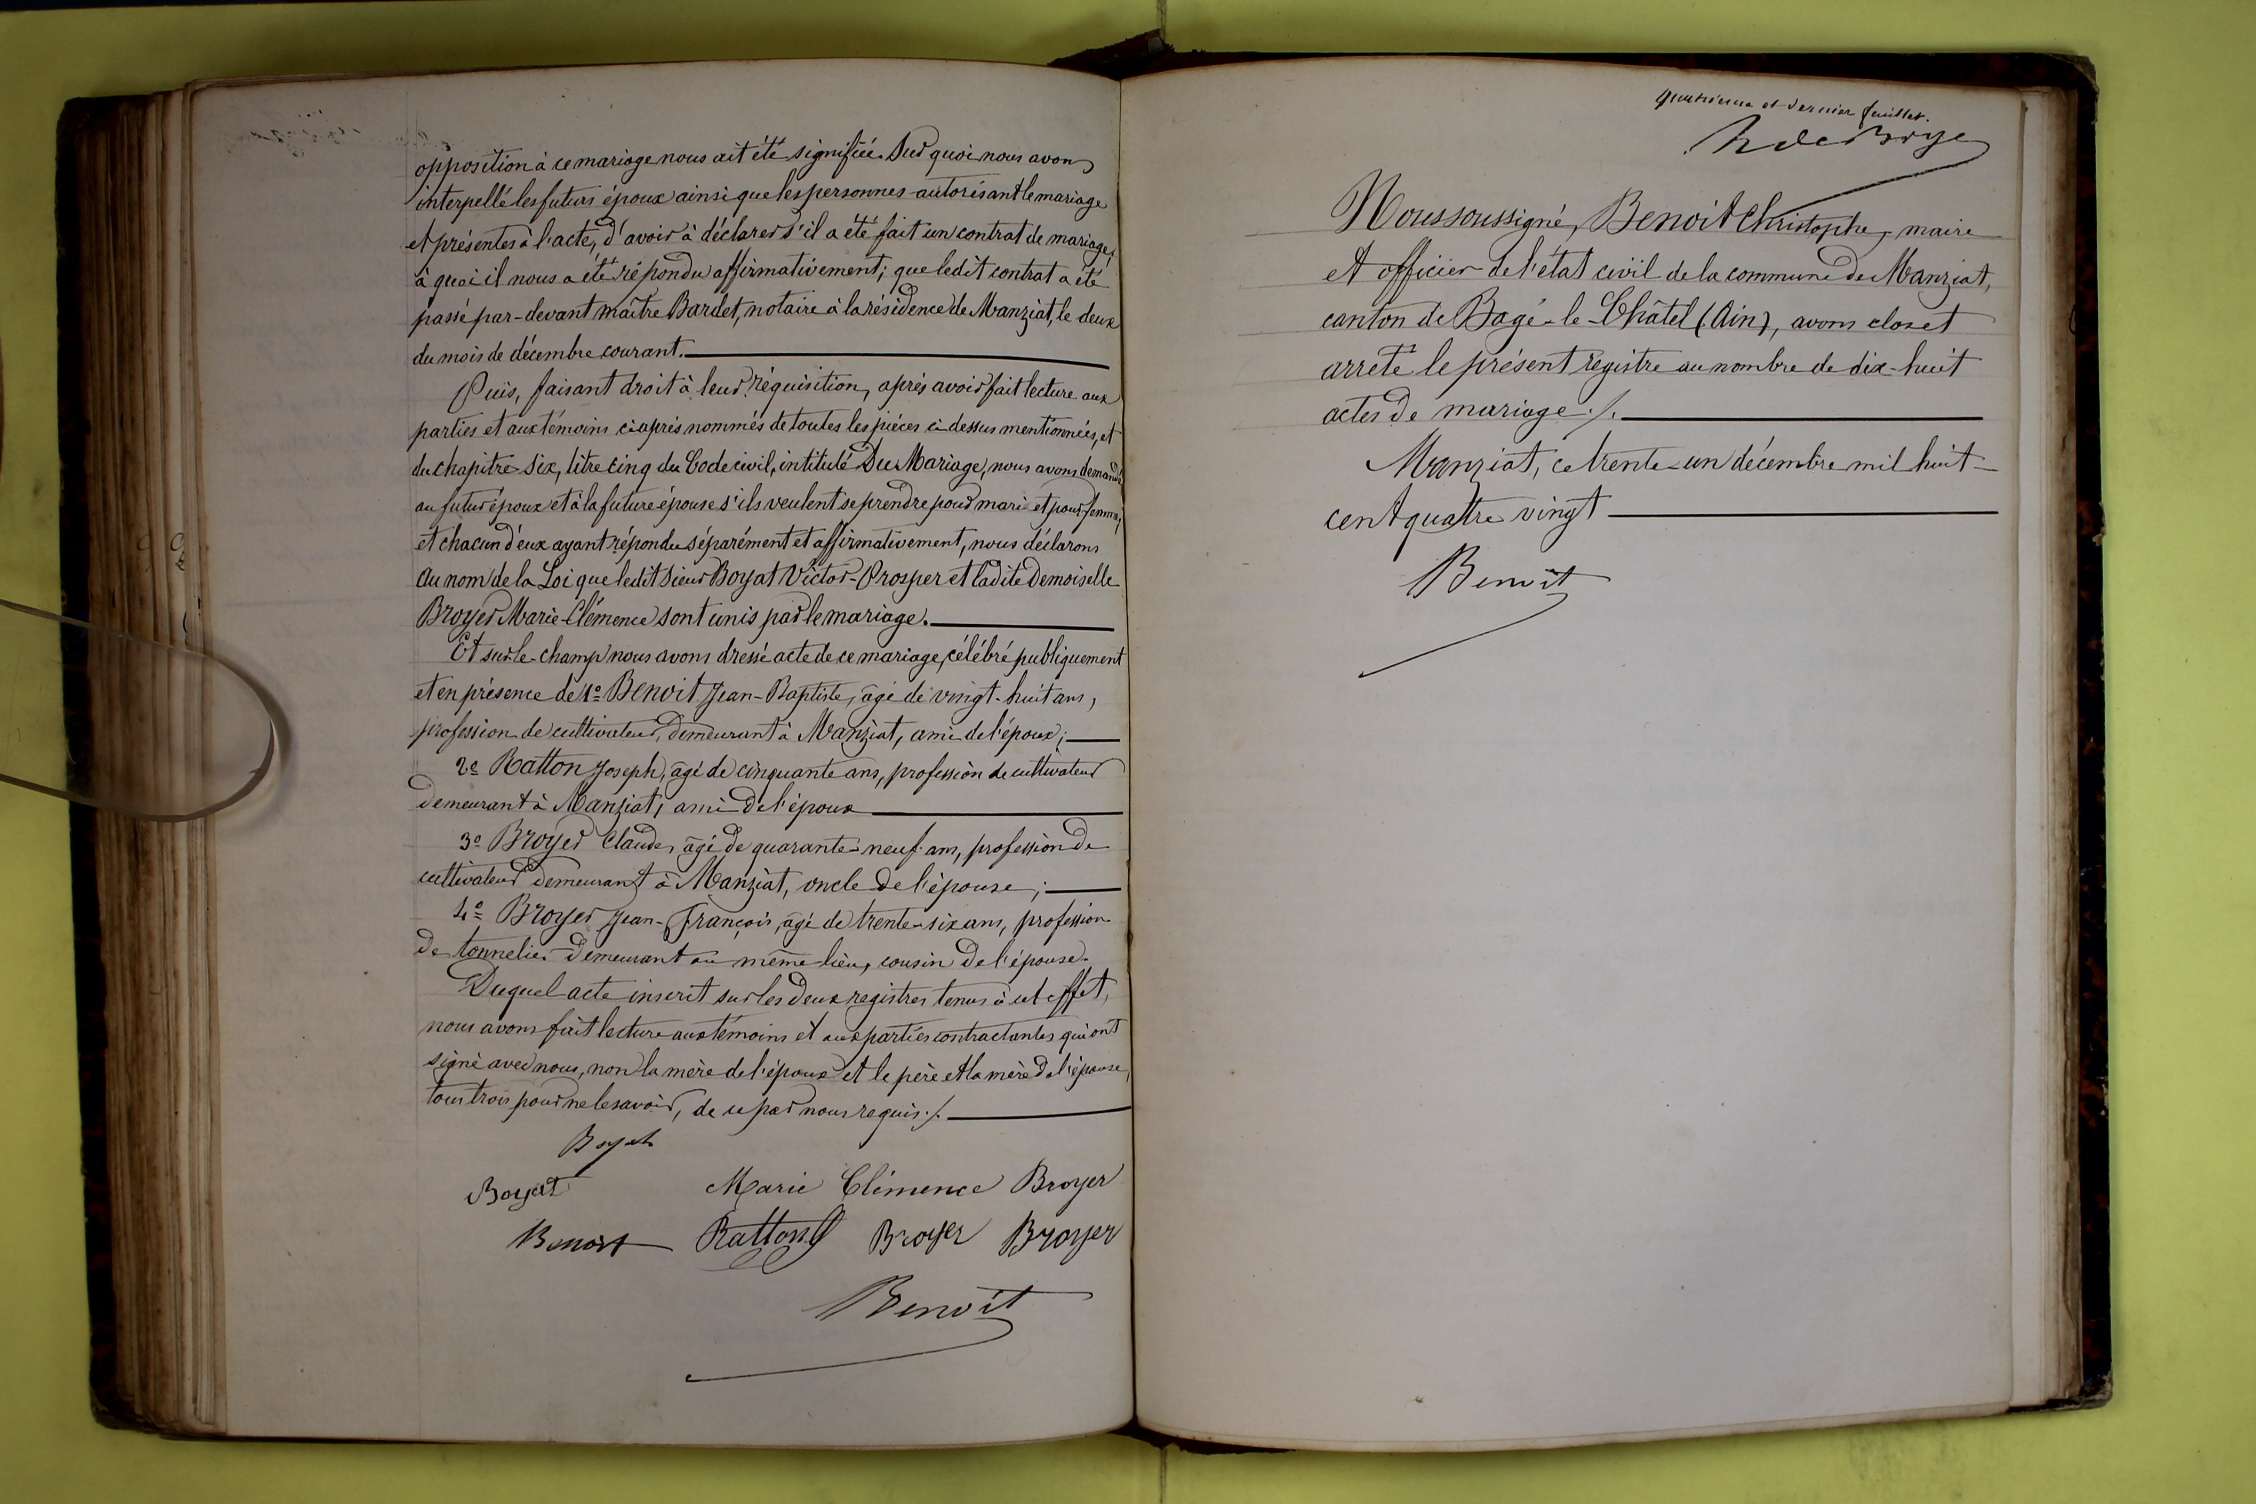 opposition à ce mariage nous ait été signifiée. Sur quoi nous avons
interpellé les futurs époux ainsi que les personnes autorisant le mariage
et présentes à l'acte, d'avoir à déclarer s'il a été fait un contrat de mariage,
à quoi il nous a été répondu affirmativement; que ledit contrat a été
passé par-devant maître Bardet, notaire à la résidence de Manziat, le deux
du mois de décembre courant.
Puis, faisant droit à leur réquisition, après avoir fait lecture aux
parties et aux témoins ci-après nommés de toutes les pièces ci-dessus mentionnées, et
du chapitre six, titre cinq du Code civil, intitulé Du Mariage, nous avons demandé
au futur époux et à la future épouse s'ils veulent se prendre pour mari et pour femme;
et chacun d'eux ayant répondu séparément et affirmativement, nous déclarons
au nom de la Loi que ledit sieur Boyat Victor-Prosper et ladite Demoiselle
Broyer Marie-Clémence sont unis par le mariage.
Et sur-le-champ nous avons dressé acte de ce mariage, célébré publiquement
et en présence de 1º Benoit Jean-Baptiste, âgé de vingt-huit ans,
profession de cultivateur, demeurant à Manziat, ami de l'époux;
2º Ratton Joseph, âgé de cinquante ans, profession de cultivateur
demeurant à Manziat, ami de l'époux
3º Broyer Claude, âgé de quarante-neuf ans, profession de
cultivateur demeurant à Manziat, oncle de l'épouse;
4º Broyer Jean-François, âgé de trente-six ans, profession
de tonnelier demeurant au même lieu, cousin de l'épouse.
Duquel acte inscrit sur les deux registres tenus à cet effet,
nous avons fait lecture aux témoins et aux parties contractantes qui ont
signé avec nous, non la mère de l'époux et le père et la mère de l'épouse,
tous trois pour ne le savoir, de ce par nous requis ./.
Boyat
Boyat Marie Clémence Broyer
Benoit Ratton Broyer Broyer
Benoit
et dernier feuillet.
Nous soussigné, Benoit Christophe, maire
et officier de l'état civil de la commune de Manziat,
canton de Bagé-le-Châtel (Ain), avons clos et
arrêté le présent registre au nombre de dix-huit
actes de mariage ./.
Manziat, ce trente-un décembre mil huit-
cent quatre vingt
Benoit